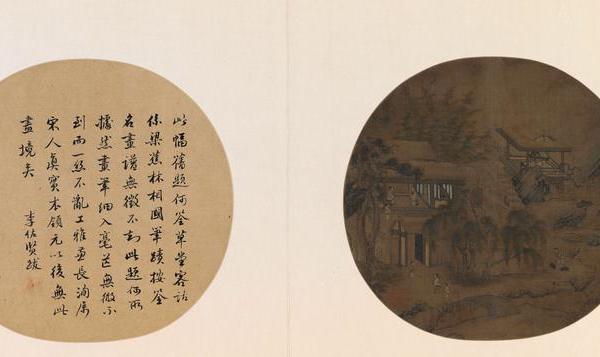 此幅舊題何荃草堂客話
係梁蕉林相國筆蹟按荃
名畫譜無徵不知此題何所
據然畫筆細入毫芒無微不
到而一絲不亂工雅盡長洵屬
宋人真實本領元以後無此
畫境矣
李佐賢跋